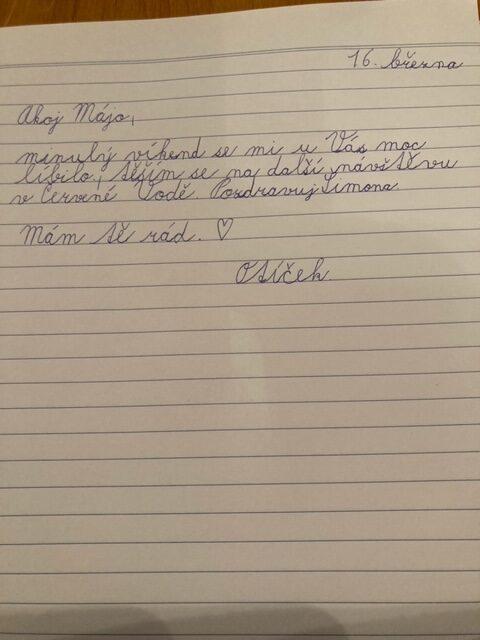 16. března
Ahoj Májo,
minulý víkend se mi u Vás moc
líbilo, těším se na další návštěvu
v Červené Vodě. Pozdravuj Šimona
Mám tě rád. ♡
Otíček